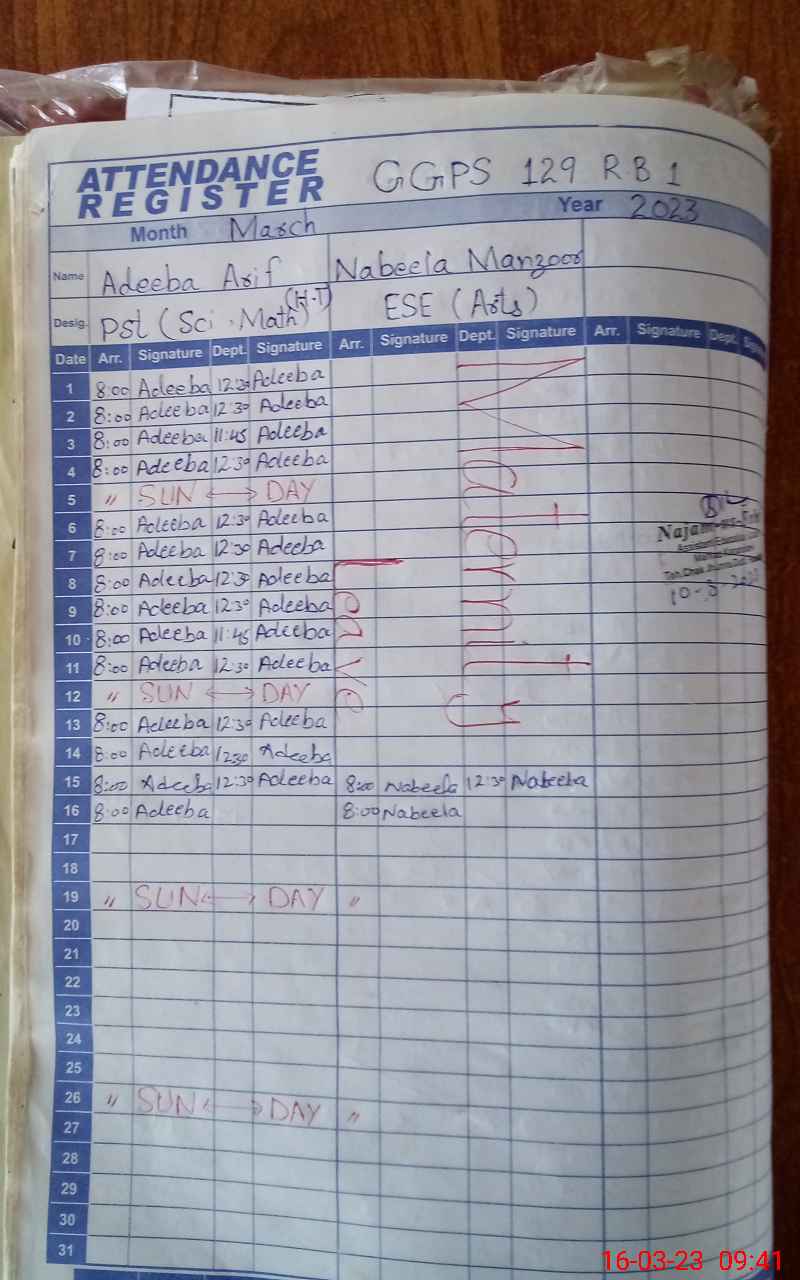 ATTENDANCE REGISTER GGPS 129 R.B 1
Month March Year 2023
Name Adeeba Arif Nabeela Manzoor
Desig. PST (Sci.Math) (H.T) ESE (Arts)
Date Arr. Signature Dept. Signature Arr. Signature Dept. Signature Arr. Signature Dept.
1 8:00 Adeeba 12:30 Adeeba
2 8:00 Adeeba 12:30 Adeeba
3 8:00 Adeeba 11:45 Adeeba
4 8:00 Adeeba 12:30 Adeeba
5 " SUN ↔ DAY
6 8:00 Adeeba 12:30 Adeeba
7 8:00 Adeeba 12:30 Adeeba
8 8:00 Adeeba 12:30 Adeeba
9 8:00 Adeeba 12:30 Adeeba
10 8:00 Adeeba 11:45 Adeeba
11 8:00 Adeeba 12:30 Adeeba
12 " SUN ↔ DAY
13 8:00 Adeeba 12:30 Adeeba
14 8:00 Adeeba 12:30 Adeeba
15 8:00 Adeeba 12:30 Adeeba 8:00 Nabeela 12:30 Nabeela
16 8:00 Adeeba 8:00 Nabeela
17
18
19 " SUN ↔ DAY "
20
21
22
23
24
25
26 " SUN ↔ DAY "
27
28
29
30
31
Maternity
Leave
16-03-23 09:41